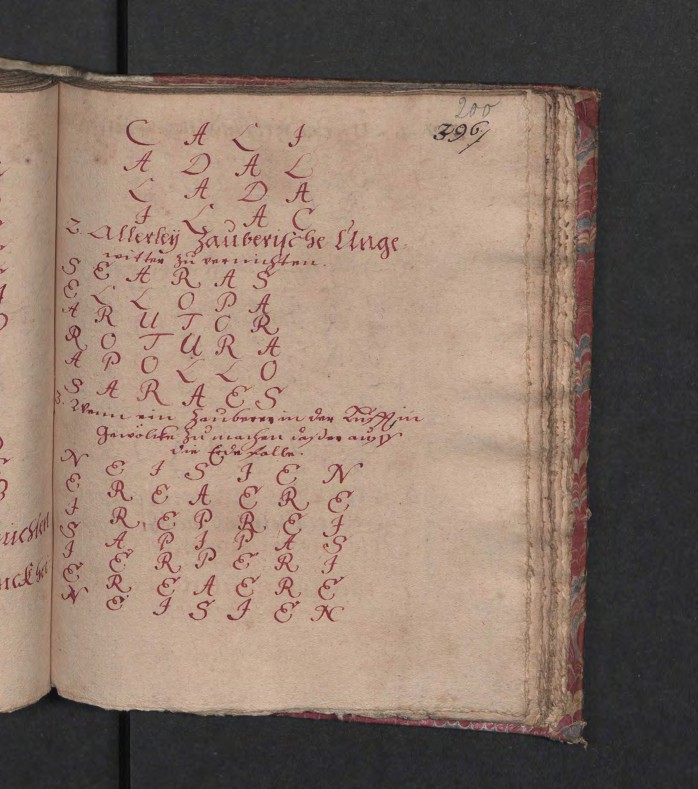 200
396
C A L I
A D A L
L A D A
I L A C
2. Allerleÿ Zauberische Unge-
witter zu vernichten.
S E A R A S
E L L O P A
A R U T O R
R O T U R A
A P O L L O
S A R A E S
3. Wenn ein Zauberer in der Lufft in
Gewölcke zu machen daß er auff
die Erde falle.
N E I S I E N
E R E A E R E
I R E P R E I
S A P I P A S
I E R P E R I
E R E A E R E
N E I S I E N